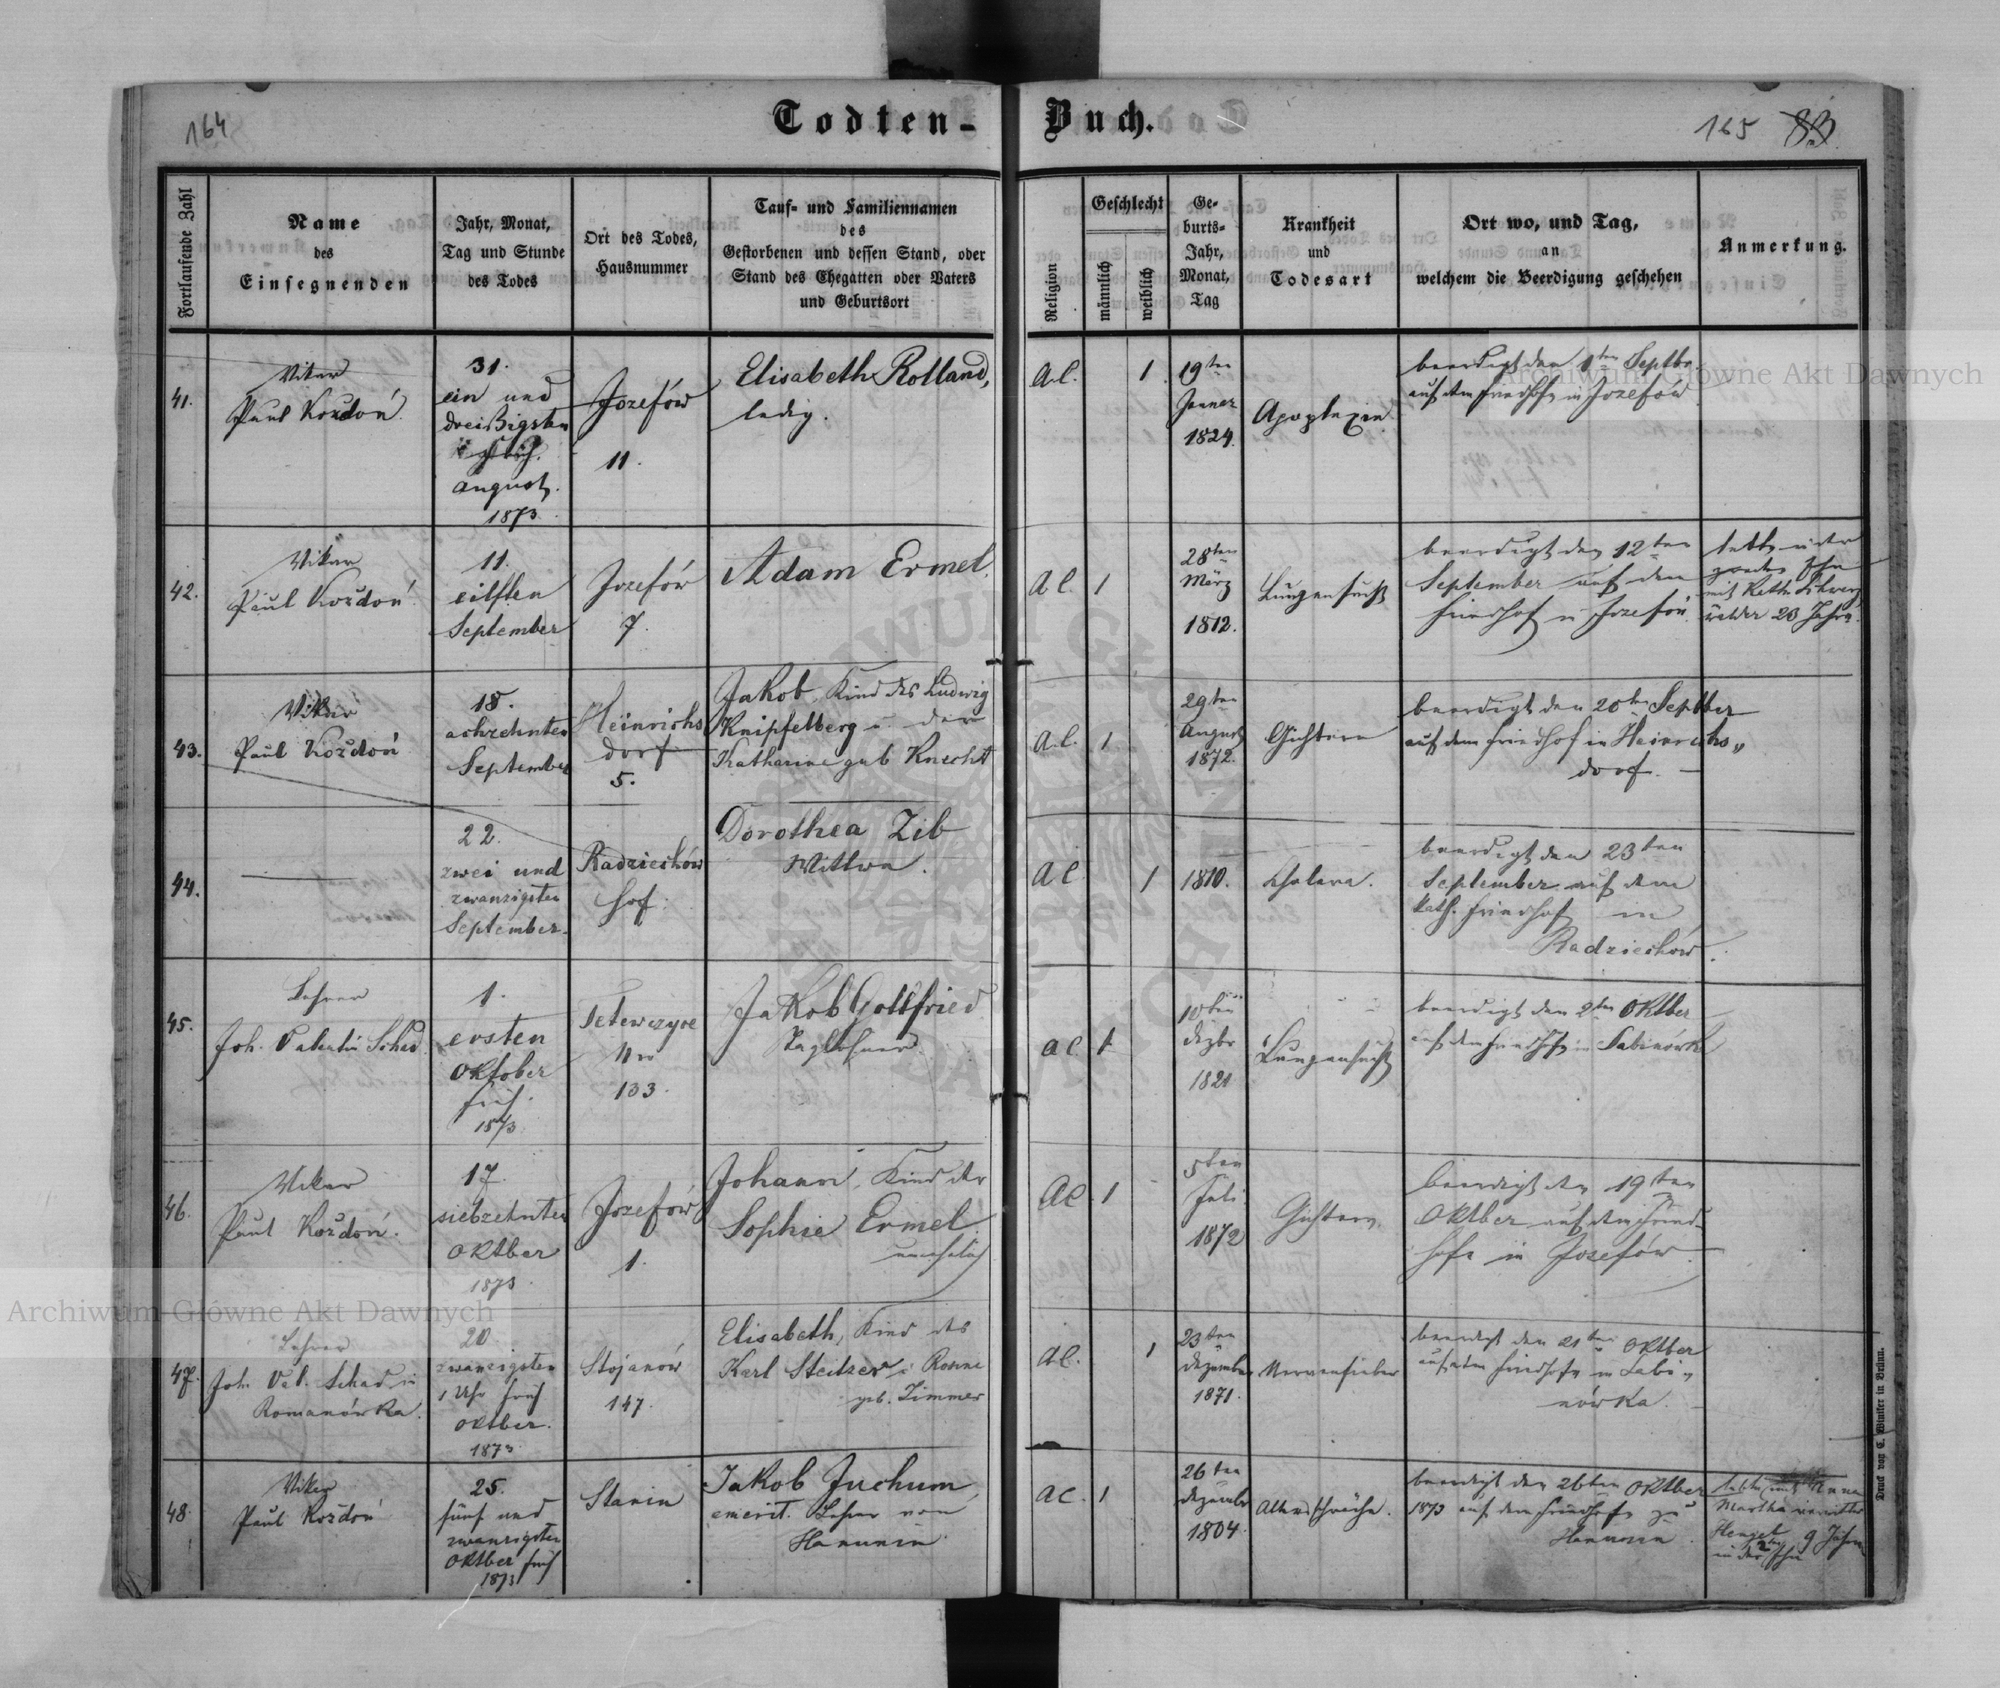 164
Todten-Buch.
165 83
Fortlaufende Zahl
Name
des
Einsegnenden
Jahr, Monat,
Tag und Stunde
des Todes
Ort des Todes,
Hausnummer
Tauf- und Familiennamen
des
Gestorbenen und dessen Stand, oder
Stand des Ehegatten oder Vaters
und Geburtsort
Religion
Geschlecht
männlich
weiblich
Ge-
burts-
Jahr,
Monat,
Tag
Krankheit
und
Todesart
Ort wo, und Tag,
an
welchem die Beerdigung geschehen
Anmerkung.
41.
Vikar
Paul Kozdoń.
31.
ein und
dreißigsten
August.
1873
Jozefów
11.
Elisabeth Rolland,
ledig.
A.C.
1
19ten
Jänner
1824.
Apoplexie
beerdigt den 1ten Septbr
auf dem Friedhofe in Jozefów
42.
Vikar
Paul Kozdoń.
11.
eilften
September
Jozefów
7.
Adam Ermel.
A.C.
1
28ten
März
1812.
Lungensucht
beerdigt den 12ten
September auf dem
Friedhof in Jozefów.
lebte in der
zweiten Ehe
mit Kath.
23 Jahre.
43.
Vikar
Paul Kozdoń
18.
achzehnten
September
Heinrichs
dorf
5.
Jakob, Kind des Ludwig
Knipfelberg u. der
Katharine geb Knecht
A.C.
1
29ten
August
1872.
Gichtern
beerdigt den 20ten Septber
auf dem Friedhof in Heinrichs„
dorf.
44.
22.
zwei und
zwanzigsten
September.
Radziechów
Hof.
Dorothea Zib
Wittwe.
A.C.
1
1810.
Cholera.
beerdigt den 23ten
September auf dem
kath. Friedhof in
Radziechów.
45.
Lehrer
Joh. Valentin Schad.
1.
ersten
Oktober
früh.
1873
Tetewczyce
Nro
133.
Jakob Gottfried
Taglöhner.
A.C.
1
10ten
Dezbr
1821
Lungensucht
beerdigt den 2ten Oktber
auf dem Friedhofe in Sabinówka
46.
Vikar
Paul Kozdoń.
17.
siebzehnten
Oktber
1873.
Jozefów
1.
Johann, Kind der
Sophie Ermel
unehelich.
A.C.
1
5ten
Juli
1872
Gichtern
beerdigt den 19ten
Oktber auf dem Fried-
hofe in Jozefów.
47.
Lehrer
Joh. Val. Schad in
Romanówka.
20.
zwanzigsten
1 Uhr früh
Oktber.
1873
Stojanów
147.
Elisabeth, Kind des
Karl Steitzer u. Rosine
geb. Zimmer
A.C.
1
23ten
Dezember
1871.
Nervenfieber
beerdigt den 21ten Oktber
auf dem Friedhofe in Sabi„
nówka.
48.
Vikar
Paul Kozdoń
25.
fünf und
zwanzigsten
Oktber früh
1873
Stanin
Jakob Juchum,
emerit. Lehrer von
Hanunin.
A.C.
1
26ten
Dezember
1804.
Altersschwäche.
beerdigt den 26ten Oktber
1873 auf dem Friedhofe zu
Hanunin.
lebte mit Anna
Martha
Hengel 9 Jahre
in der 2ten Ehe
Druck von C. Winiker in Brünn.
Archiwum Główne Akt Dawnych
Archiwum Główne Akt Dawnych